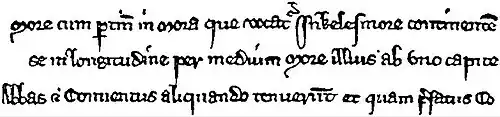 more cum ptin in mora que vocat Inkelesmore continente
se in longitudine per medium more illius ab uno capite
Abbas & Conventus aliquando tenuerut et quam pfatus Co